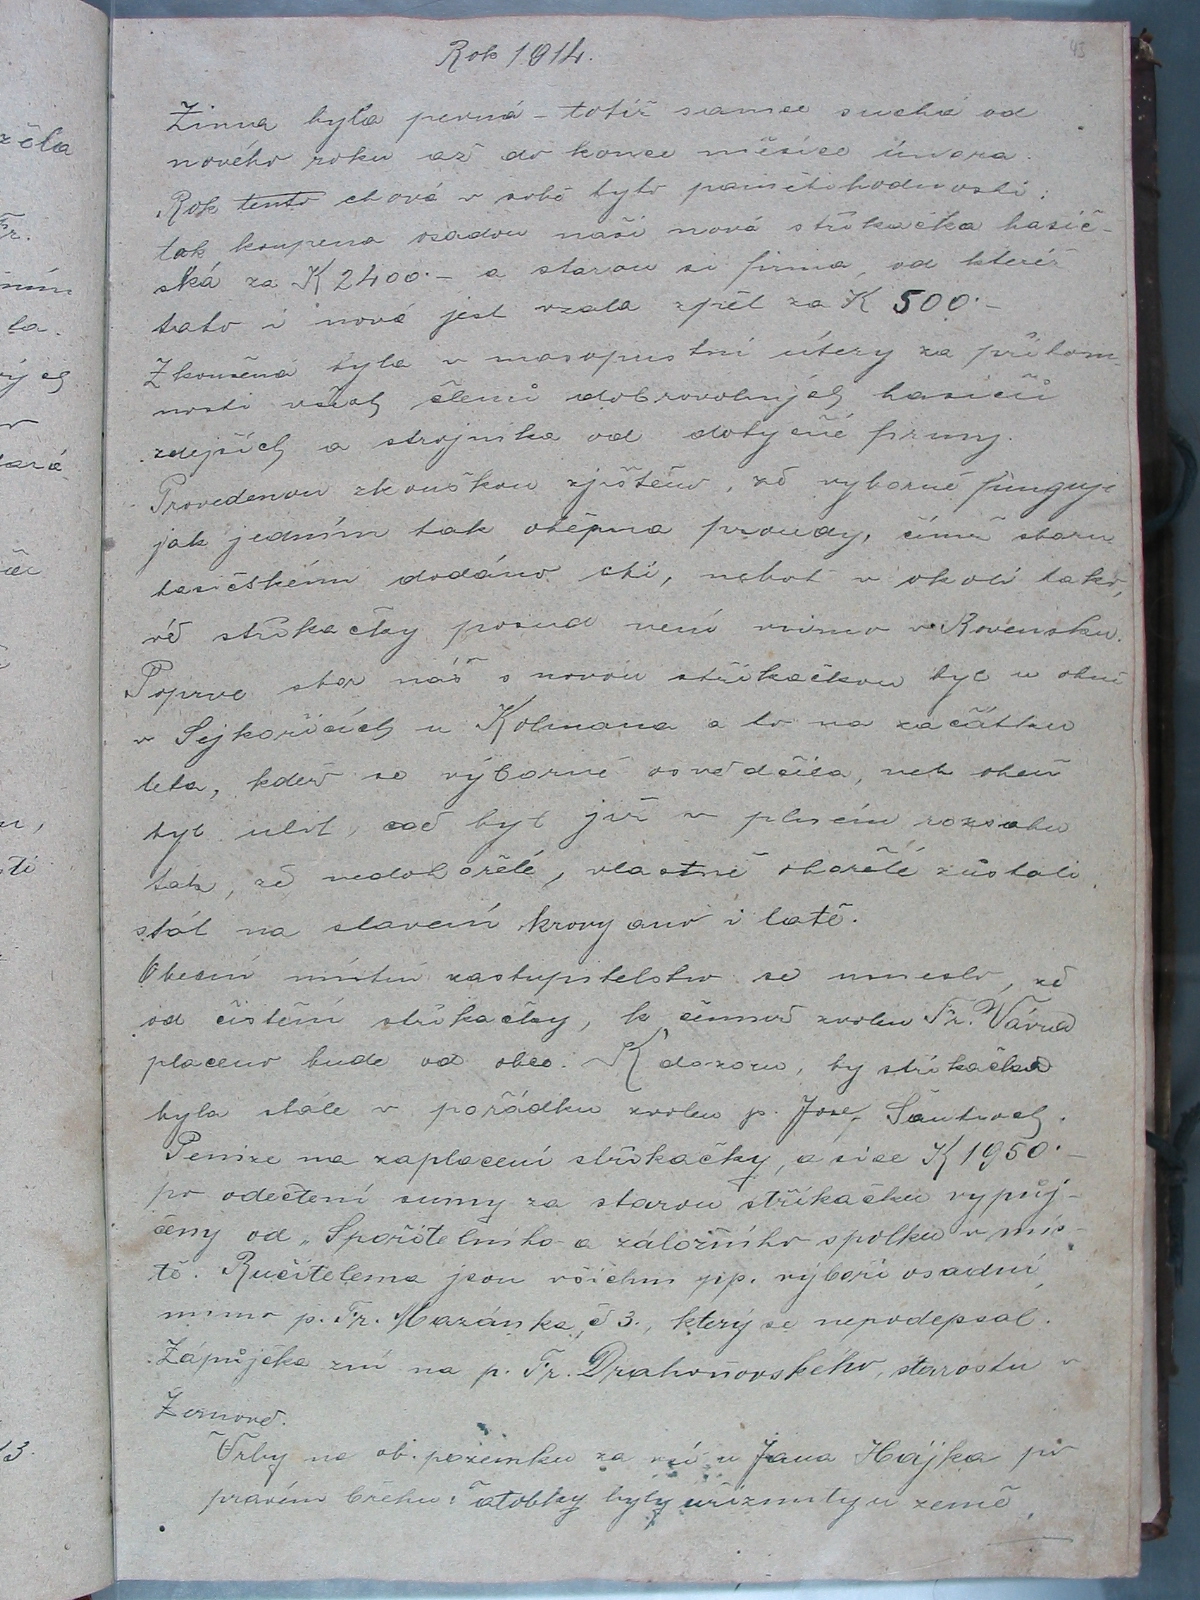 43
Rok 1914.
Zima byla pevná - totiž samee suchá od
nového roku až do konce měsíce února.
Rok tento chová v sobě tyto pamětihodnosti:
tak koupena osadou naší nová stříkačka hasič-
ská za K 2400·- a starou si firma, od kteréž
tato i nová jest vzala zpět za K 500·-
Zkoušena byla v masopustní úterý za přítom-
nosti všech členů dobrovolných hasičů
zdejších a strojníka od dotyčné firmy.
Provedenou zkouškou zjištěno, že výborně funguje
jak jedním tak oběma proudy, čímž sboru
hasičskému dodáno cti, neboť v okolí tako-
vé stříkačky posud není mimo v Rovensku.
Poprve sbor náš s novou stříkačkou byl u ohně
v Sejkořicích u Kolmana a to na začátku
leta, kdež se výborně osvědčila, neb oheň
byl ulit, což byl již v plném rozsahu
tak, že nedohořelé, vlastně ohořelé zůstali
stát na stavení krovy ano i latě.
Obecní místní zastupitelstvo se usneslo, že
od čistění stříkačky, k čemuž zvolen Fr. Vávra
placeno bude od obce. K dozoru, by stříkačka
byla stále v pořádku zvolen p. Josef Šantroch.
Peníze na zaplacení stříkačky, a sice K 1950·-
po odečtení sumy za starou stříkačku vypůj-
čeny od „Spořitelního a záložního spolku v mís-
tě. Ručitelema jsou všichni pp. výboři osadní
mimo p. Fr. Mazánka, č 3., který se nepodepsal.
Zápůjčka zní na p. Fr. Drahoňovského, starostu v
Žernově.
Vrby na ob. pozemku za vsí u Jana Hájka po
pravém břehu Žatobky byly uříznuty u země,